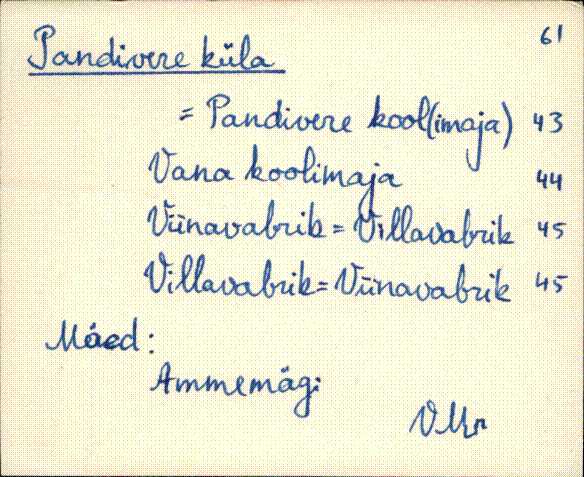 Pandivere küla 61
= Pandivere kool(imaja) 43
Vana koolimaja 44
Viinavabrik = Villavabrik 45
Villavabrik = Viinavabrik 45
Mäed:
Ammemägi
VMr